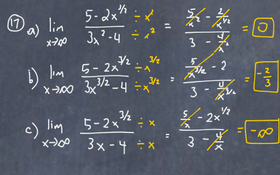 (17) a) lim x→∞ (5 - 2x^(3/2))/(3x² - 4) ÷ x² ÷ x² = (5/x² - 2/x^(1/2))/(3 - 4/x²) = 0
b) lim x→∞ (5 - 2x^(3/2))/(3x^(3/2) - 4) ÷ x^(3/2) ÷ x^(3/2) = (5/x^(3/2) - 2)/(3 - 4/x^(3/2)) = -2/3
c) lim x→∞ (5 - 2x^(3/2))/(3x - 4) ÷ x ÷ x = (5/x - 2x^(1/2))/(3 - 4/x) = -∞